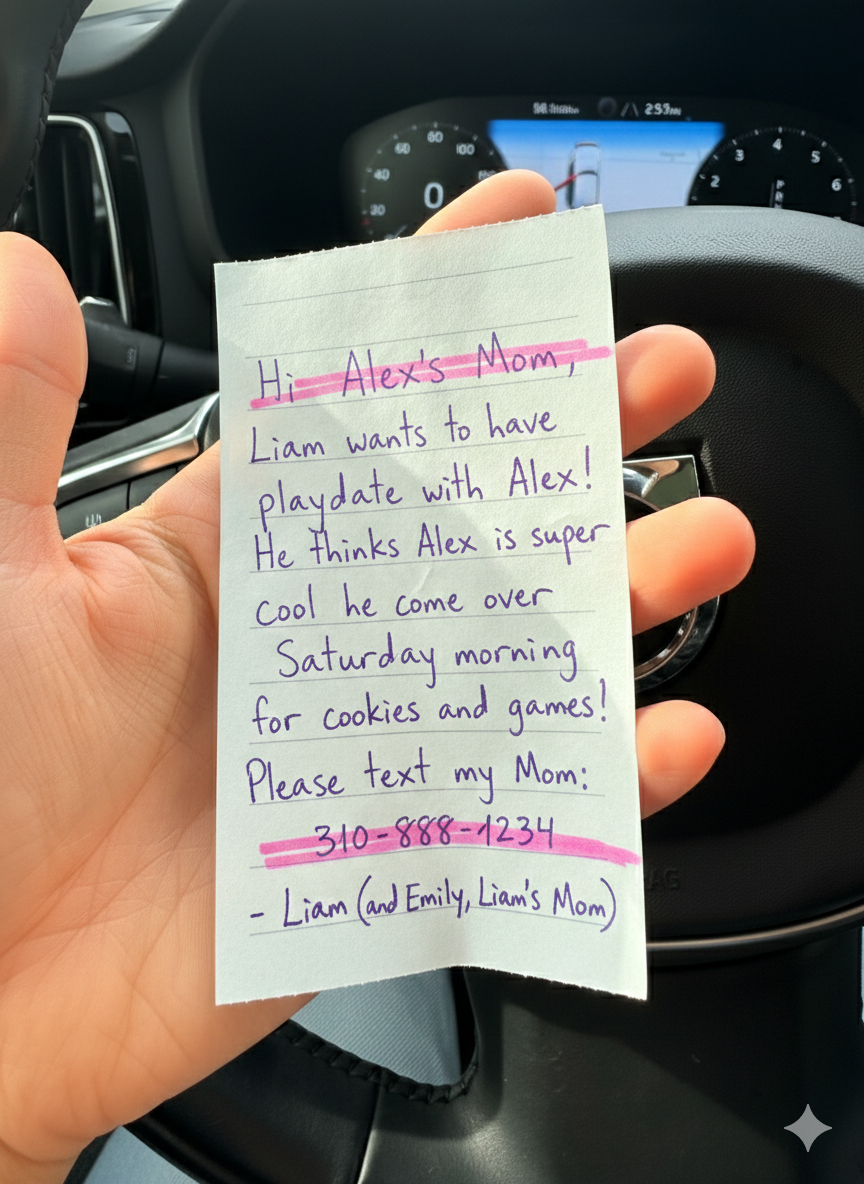 253mi
20
40
60
80
100
0
2
3
4
5
6
Hi Alex's Mom,
Liam wants to have
playdate with Alex!
He thinks Alex is super
cool he come over
Saturday morning
for cookies and games!
Please text my Mom:
310-888-1234
- Liam (and Emily, Liam's Mom)